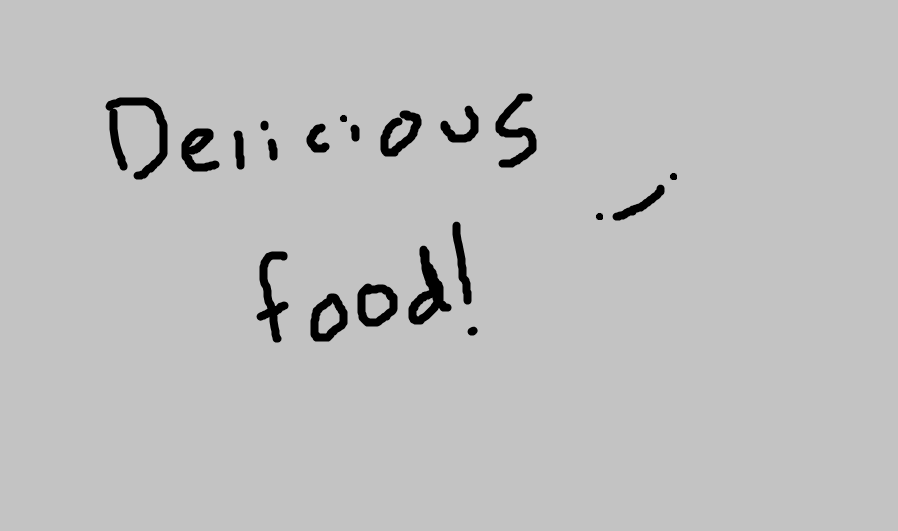 Delicious
food!